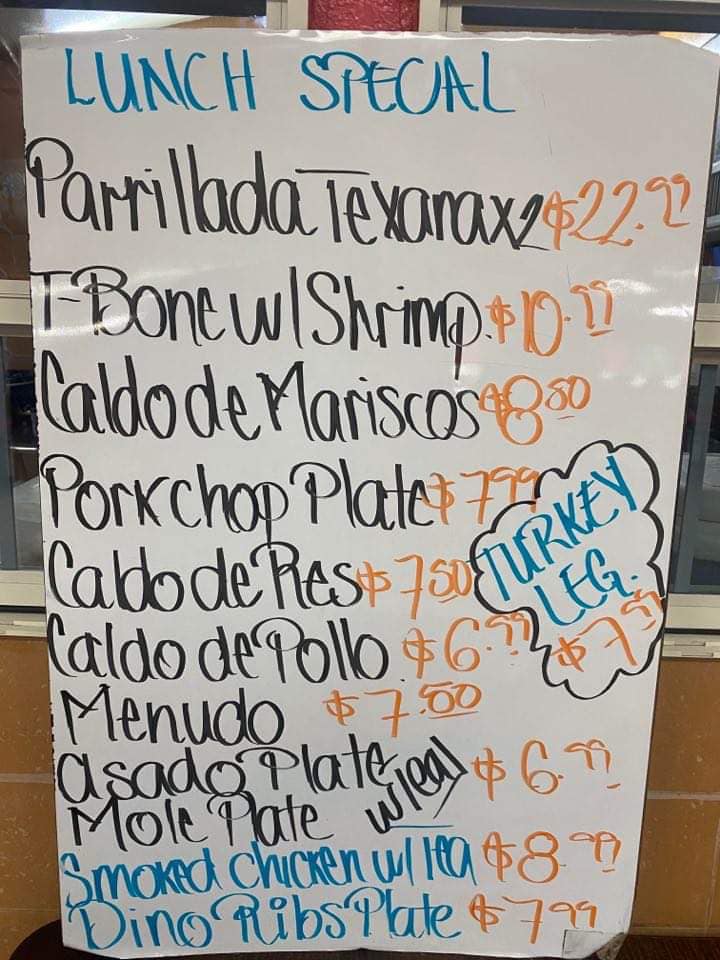 LUNCH SPECIAL
Parrillada Texana x2 $22.99
T-Bone w/ Shrimp. $10.99
Caldo de Mariscos $8.50
Porkchop Plate $7.99
TURKEY
LEG.
$7.99
Caldo de Res $7.50
Caldo de Pollo $6.99
Menudo $7.50
asado Plate w/tea $6.99
Mole Plate
Smoked Chicken w/ Tea $8.99
Dino Ribs Plate $7.99